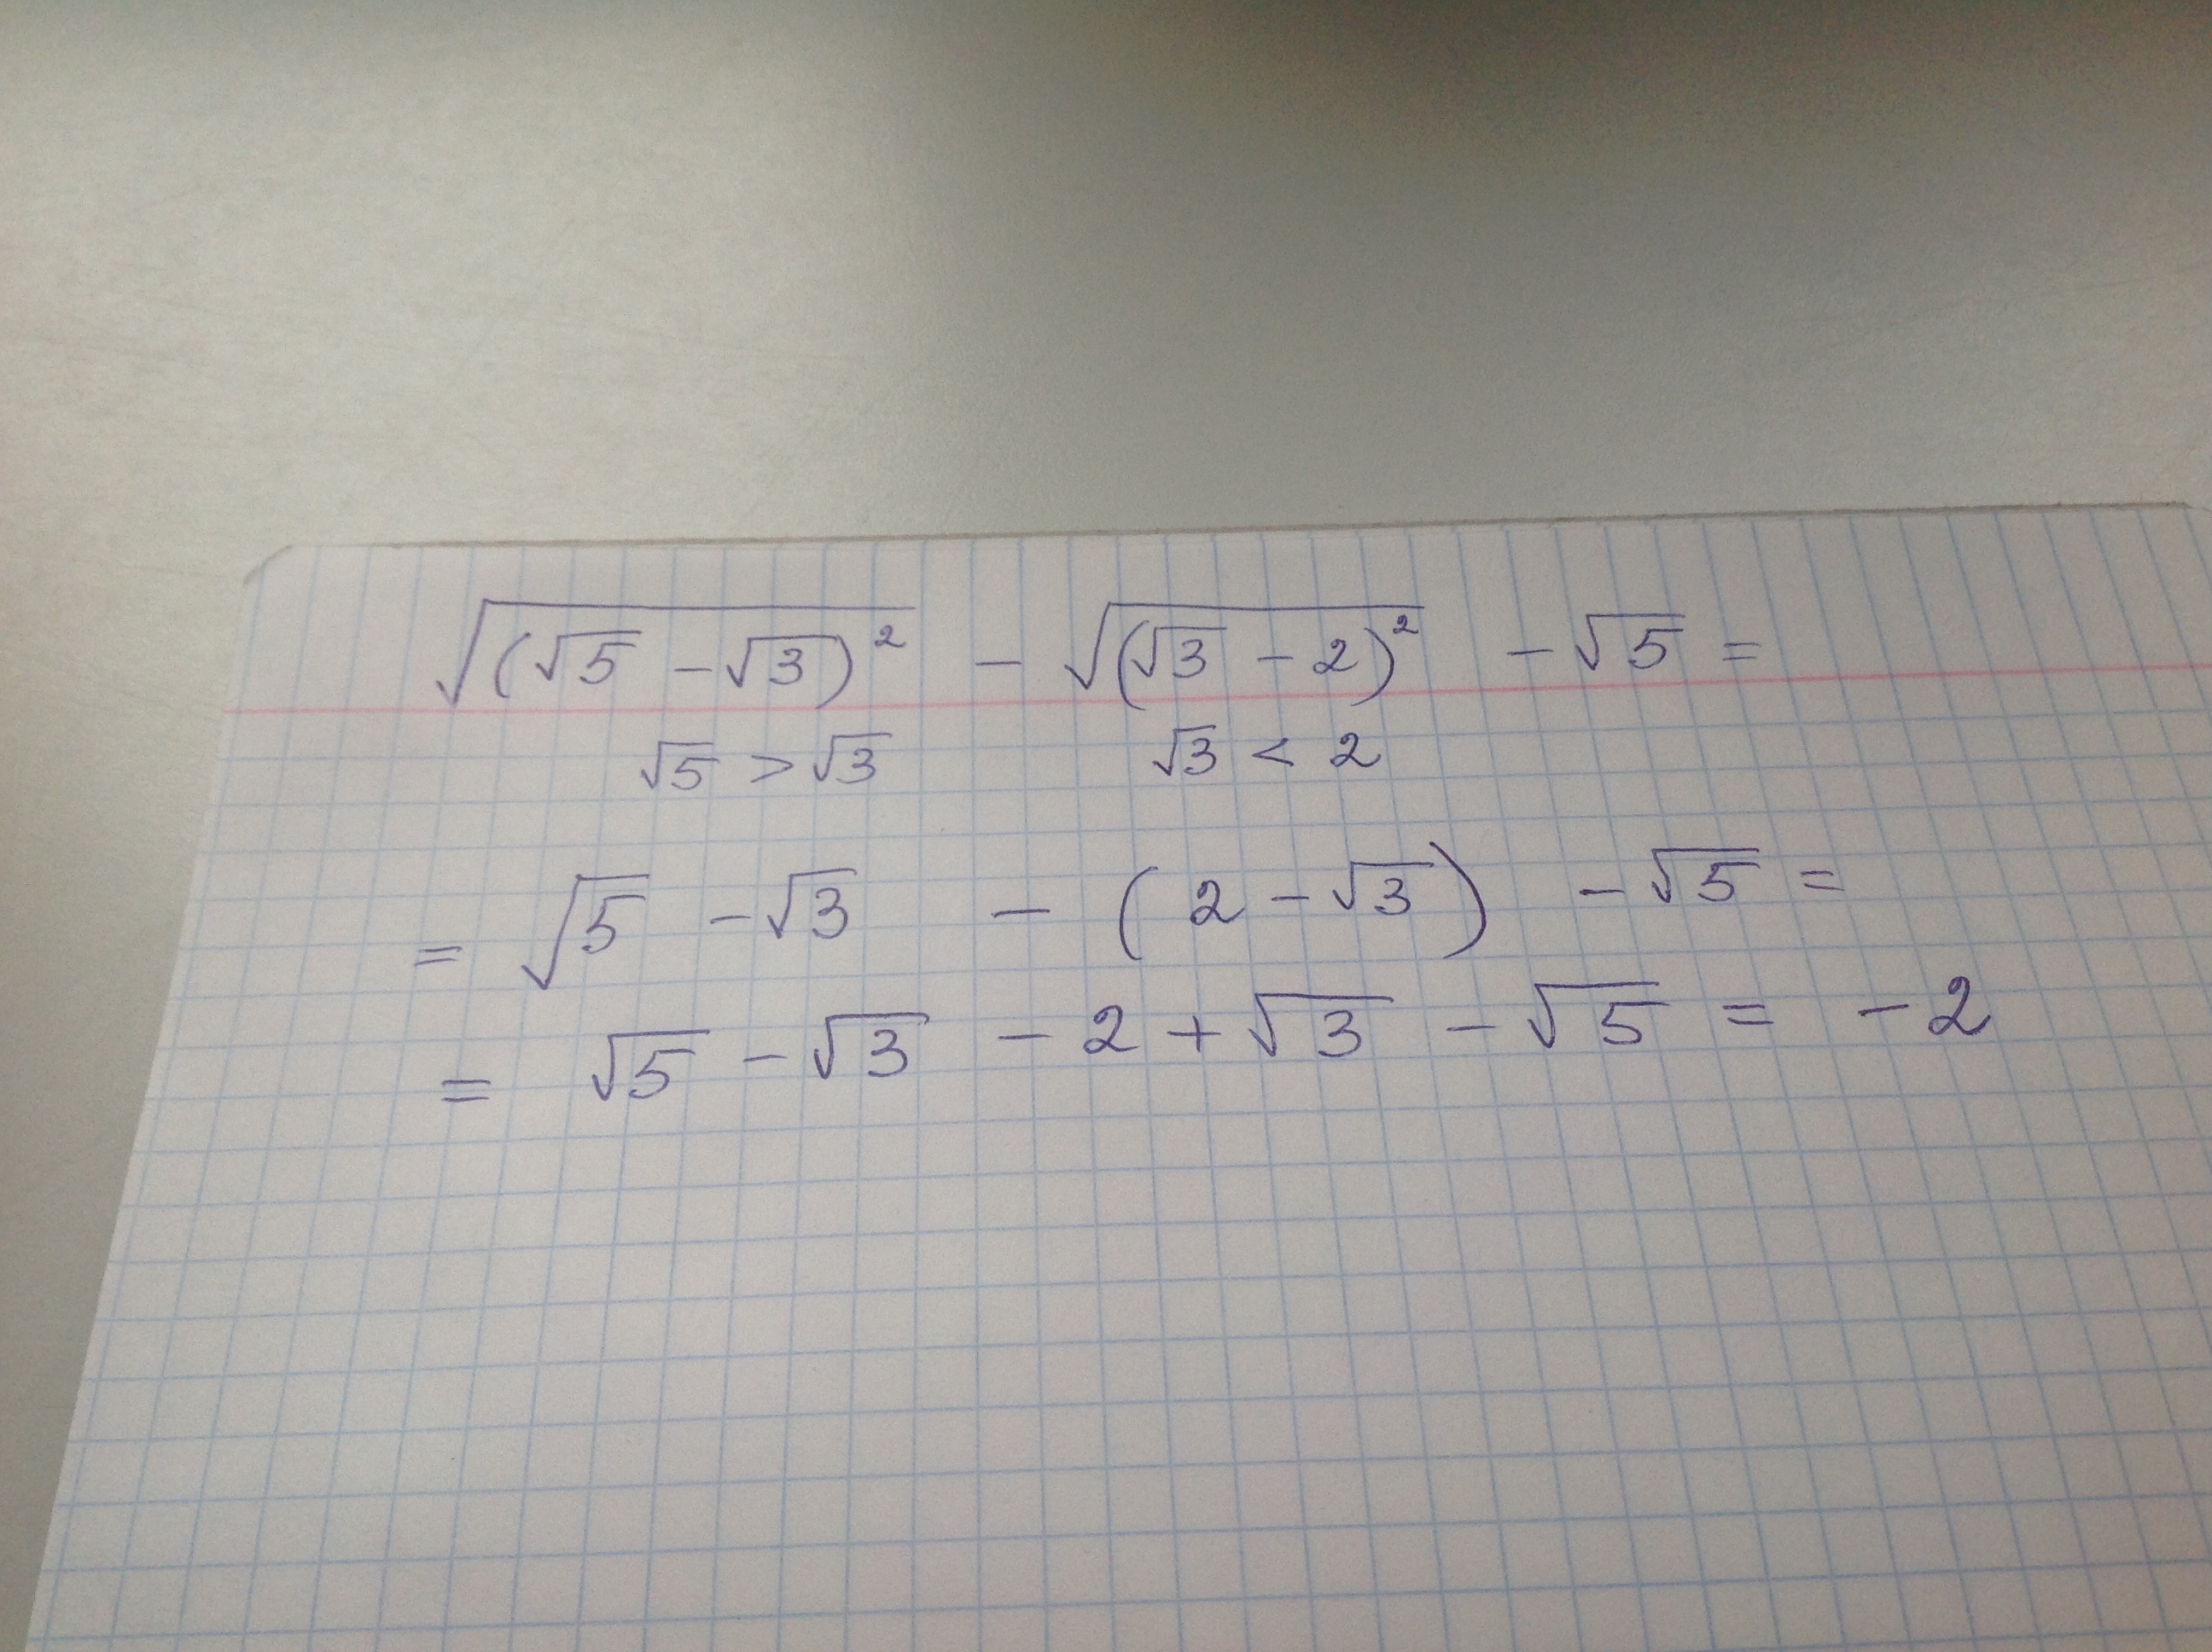 √((√5 − √3)²) − √((√3 − 2)²) − √5 =
√5 > √3 √3 < 2
= √5 − √3 − (2 − √3) − √5 =
= √5 − √3 − 2 + √3 − √5 = − 2